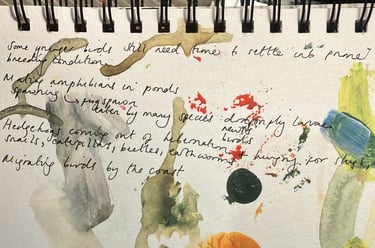 Some younger birds still need time to settle into prime
breeding condition
Mating amphibians in ponds
spawning → frogspawn
eaten by many species: dragonfly larva
newts
birds
Hedgehogs coming out of hibernation + hungry for slugs,
snails, caterpillars, beetles, earthworms
Migrating birds by the coast